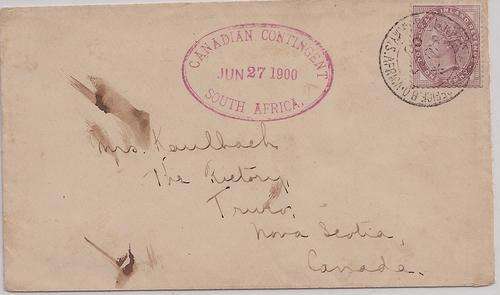 CANADIAN CONTINGENT
JUN 27 1900
SOUTH AFRICA.
Mrs. Kaulbach
The Rectory,
Truro,
Nova Scotia,
Canada.